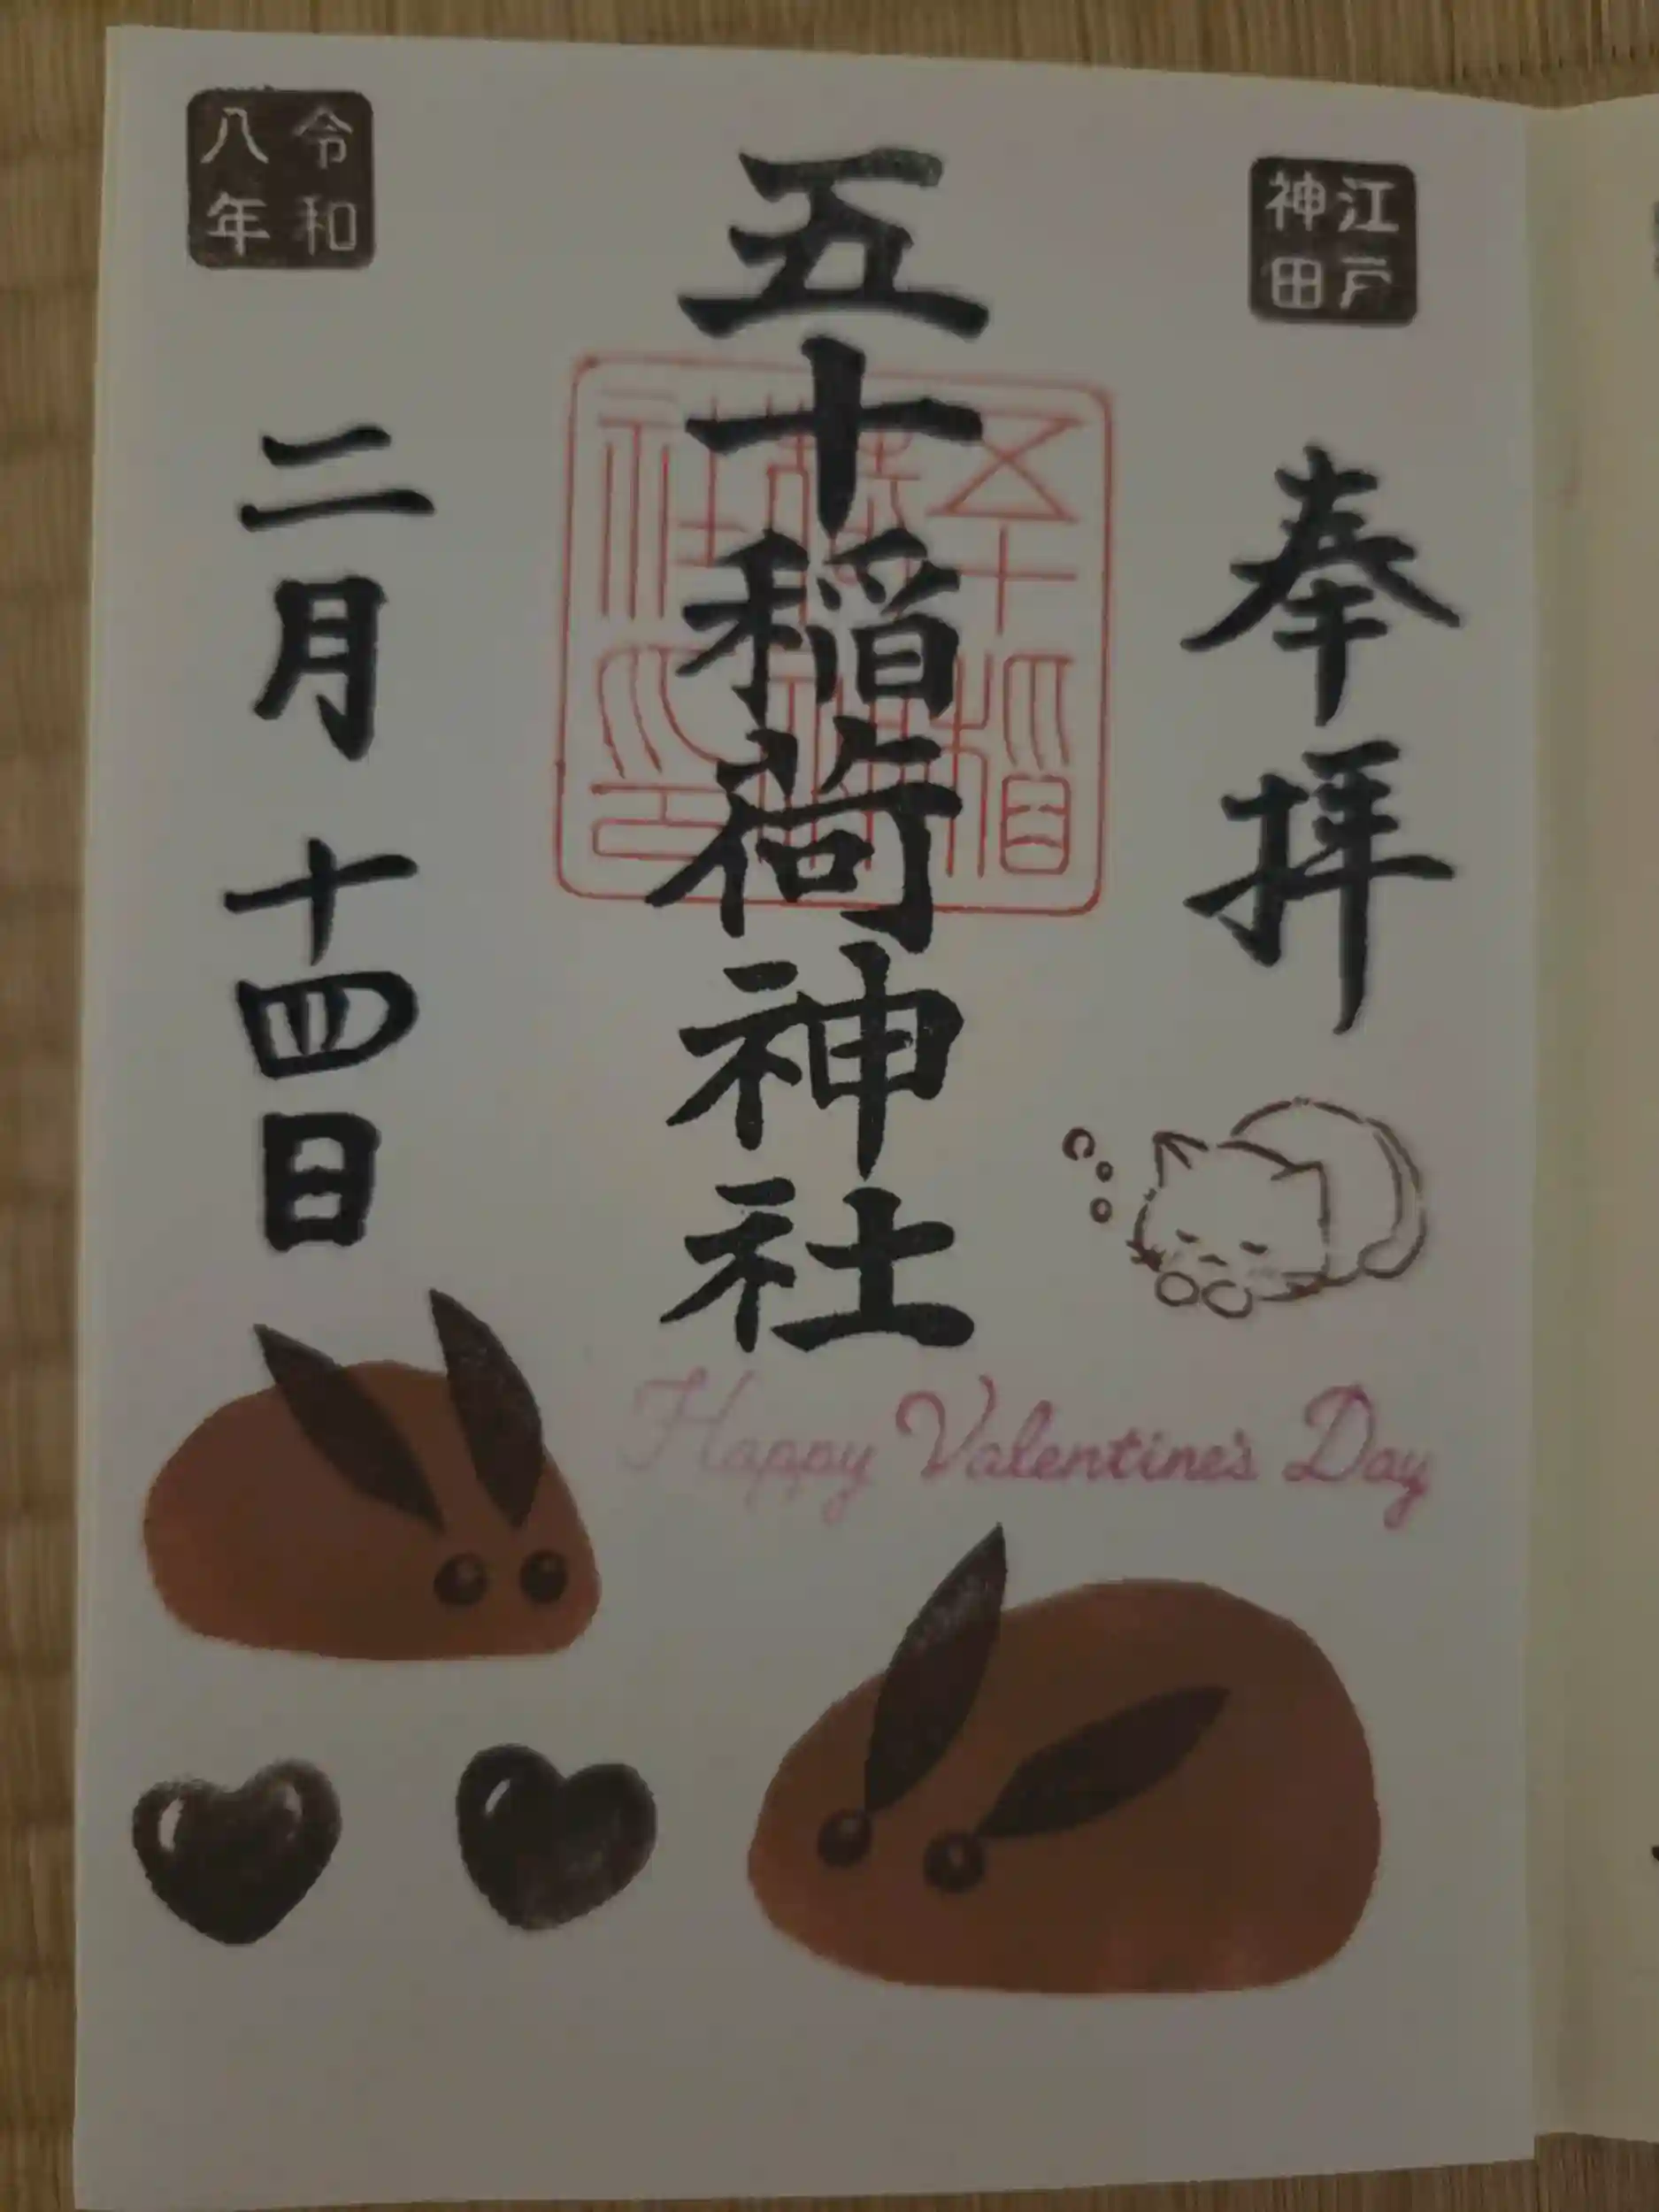 江戸神田
奉拝
五十稲荷神社
令和八年
二月十四日
Happy Valentine's Day